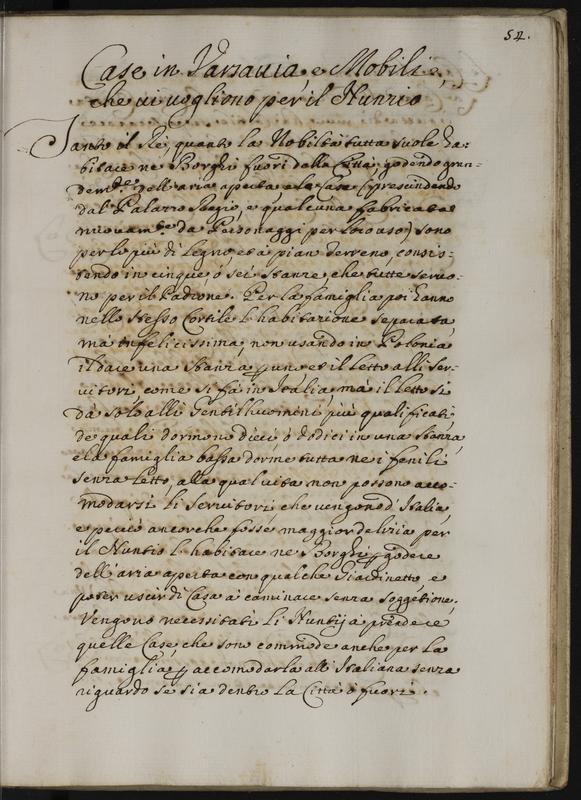 54.
Case in Varsavia e Mobili,
che vi vogliono per il Nunzio
Tanto il Rè, quanto la Nobiltà tutta suole ha-
bitare ne Borghi fuori della Città, godendo gran-
dem.te dell'aria aperta e le Case (prescindendo
dal Palazzo Regio, e qualcuna fabricata
nuovam.te da Personaggi per loro uso) sono
per lo più di Legno, et à pian Terreno, consis-
tendo in cinque, ò sei Stanze, che tutte servo-
no per il Padrone. Per la famiglia poi hanno
nello stesso Cortile l'habitazione separata,
ma infelicissima, non usando in Polonia
il dare una Stanza p uno, et il Letto alli Ser-
vitori, come si fà in Italia, mà il Letto si
dà solo alli Gentilhuomini più qualificati,
de quali dormono dieci ò dodici in una Stanza,
e la famiglia bassa dorme tutta ne i fenili
senza Letto, alla qual vita non possono acco-
modarsi li Servitori, che vengono d'Italia,
e perciò ancorche fosse maggior delizia per
il Nuntio l'habitare ne Borghi p godere
dell'aria aperta con qualche Giardinetto, e
poter uscir di Casa à caminare senza soggettione,
Vengono necessitati li Nuntij à prendere
quelle Case che sono commode anche per la
famiglia, p accomodarla all'Italiana senza
riguardo se sia dentro la Città ò fuori.